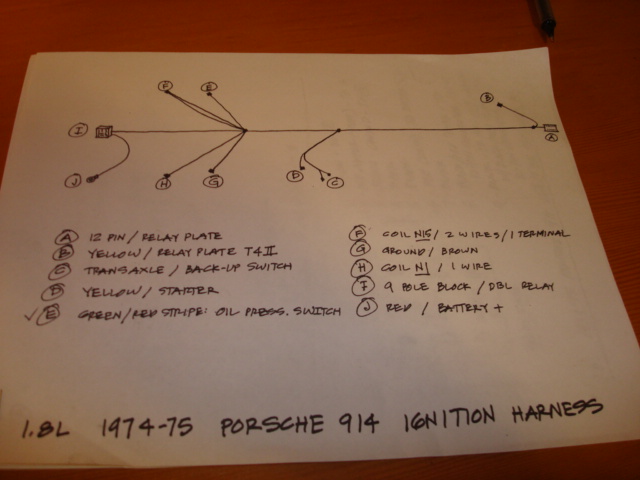 F
E
B
I
A
J
H
G
D
C
A 12 PIN / RELAY PLATE
B YELLOW / RELAY PLATE T4II
C TRANSAXLE / BACK-UP SWITCH
D YELLOW / STARTER
✓ E GREEN/RED STRIPE: OIL PRESS. SWITCH
F COIL N15 / 2 WIRES / 1 TERMINAL
G GROUND / BROWN
H COIL N1 / 1 WIRE
I 9 POLE BLOCK / DBL RELAY
J RED / BATTERY +
1.8L 1974-75 PORSCHE 914 IGNITION HARNESS